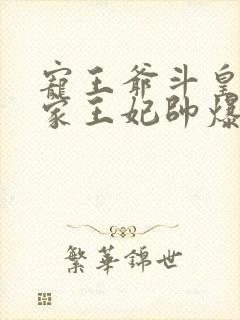 寵王爺斗皇
家王妃帥爆
繁華錦世